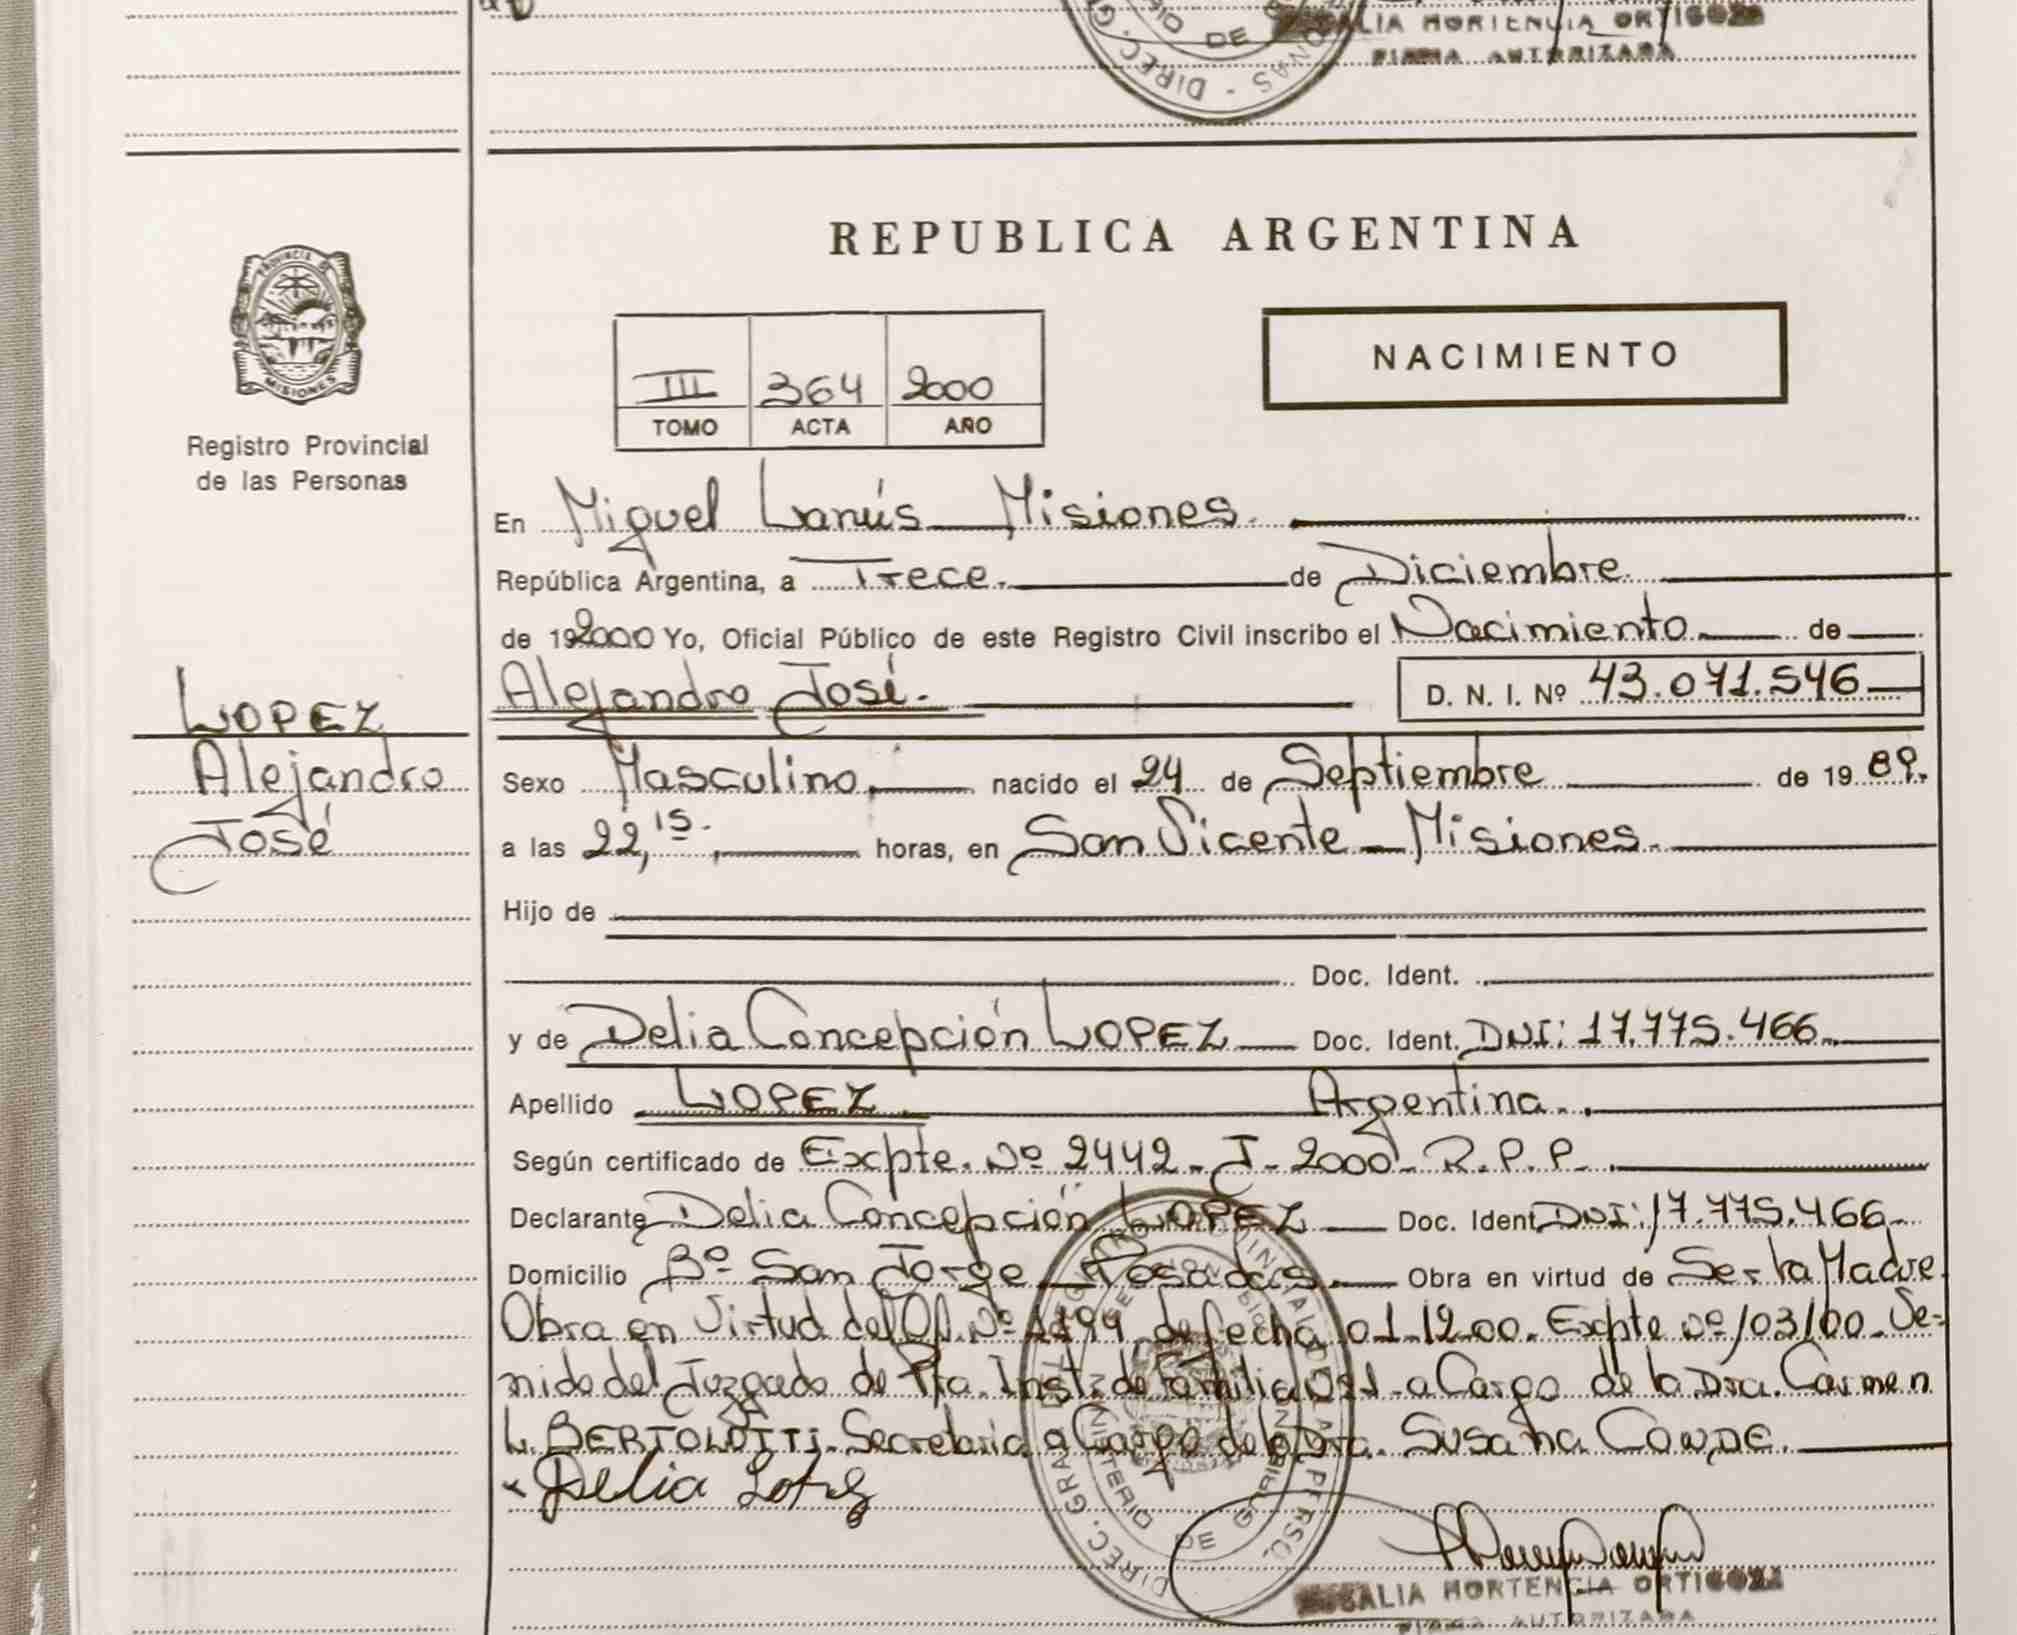 DIREC. G
DE
ONAS
ALIA HORTENCIA ORTIGOZA
FIRMA AUTORIZADA
REPUBLICA ARGENTINA
PROVINCIA DE
MISIONES
Registro Provincial
de las Personas
III 364 2000
TOMO ACTA AÑO
NACIMIENTO
En Miguel Lanús Misiones
República Argentina, a Trece de Diciembre
de 192000 Yo, Oficial Público de este Registro Civil inscribo el Nacimiento de
Alejandro José. D. N. I. Nº 43.071.546
LOPEZ
Alejandro
José
Sexo Masculino nacido el 24 de Septiembre de 19 89.
a las 22,15. horas, en San Vicente Misiones
Hijo de
Doc. Ident.
y de Delia Concepción LOPEZ Doc. Ident. DNI: 17.775.466
Apellido LOPEZ Argentina
Según certificado de Expte. Nº 2442 - J - 2000 - R.P.P.
Declarante Delia Concepción LOPEZ Doc. Ident. DNI: 17.775.466
Domicilio Bº San Jorge Posadas Obra en virtud de Ser la Madre
Obra en Virtud del Of. Nº de fecha 01-12-00. Expte nº 103/00. Ve-
nido del Juzgado de Inst. de Familia a Cargo de la Dra. Carmen
L. BERTOLOTTI. Secretaria a Cargo de la Dra. Susana CONDE.
Delia Lopez
DIREC. GRAL.
DE
ALIA HORTENCIA ORTIGOZA
FIRMA AUTORIZADA